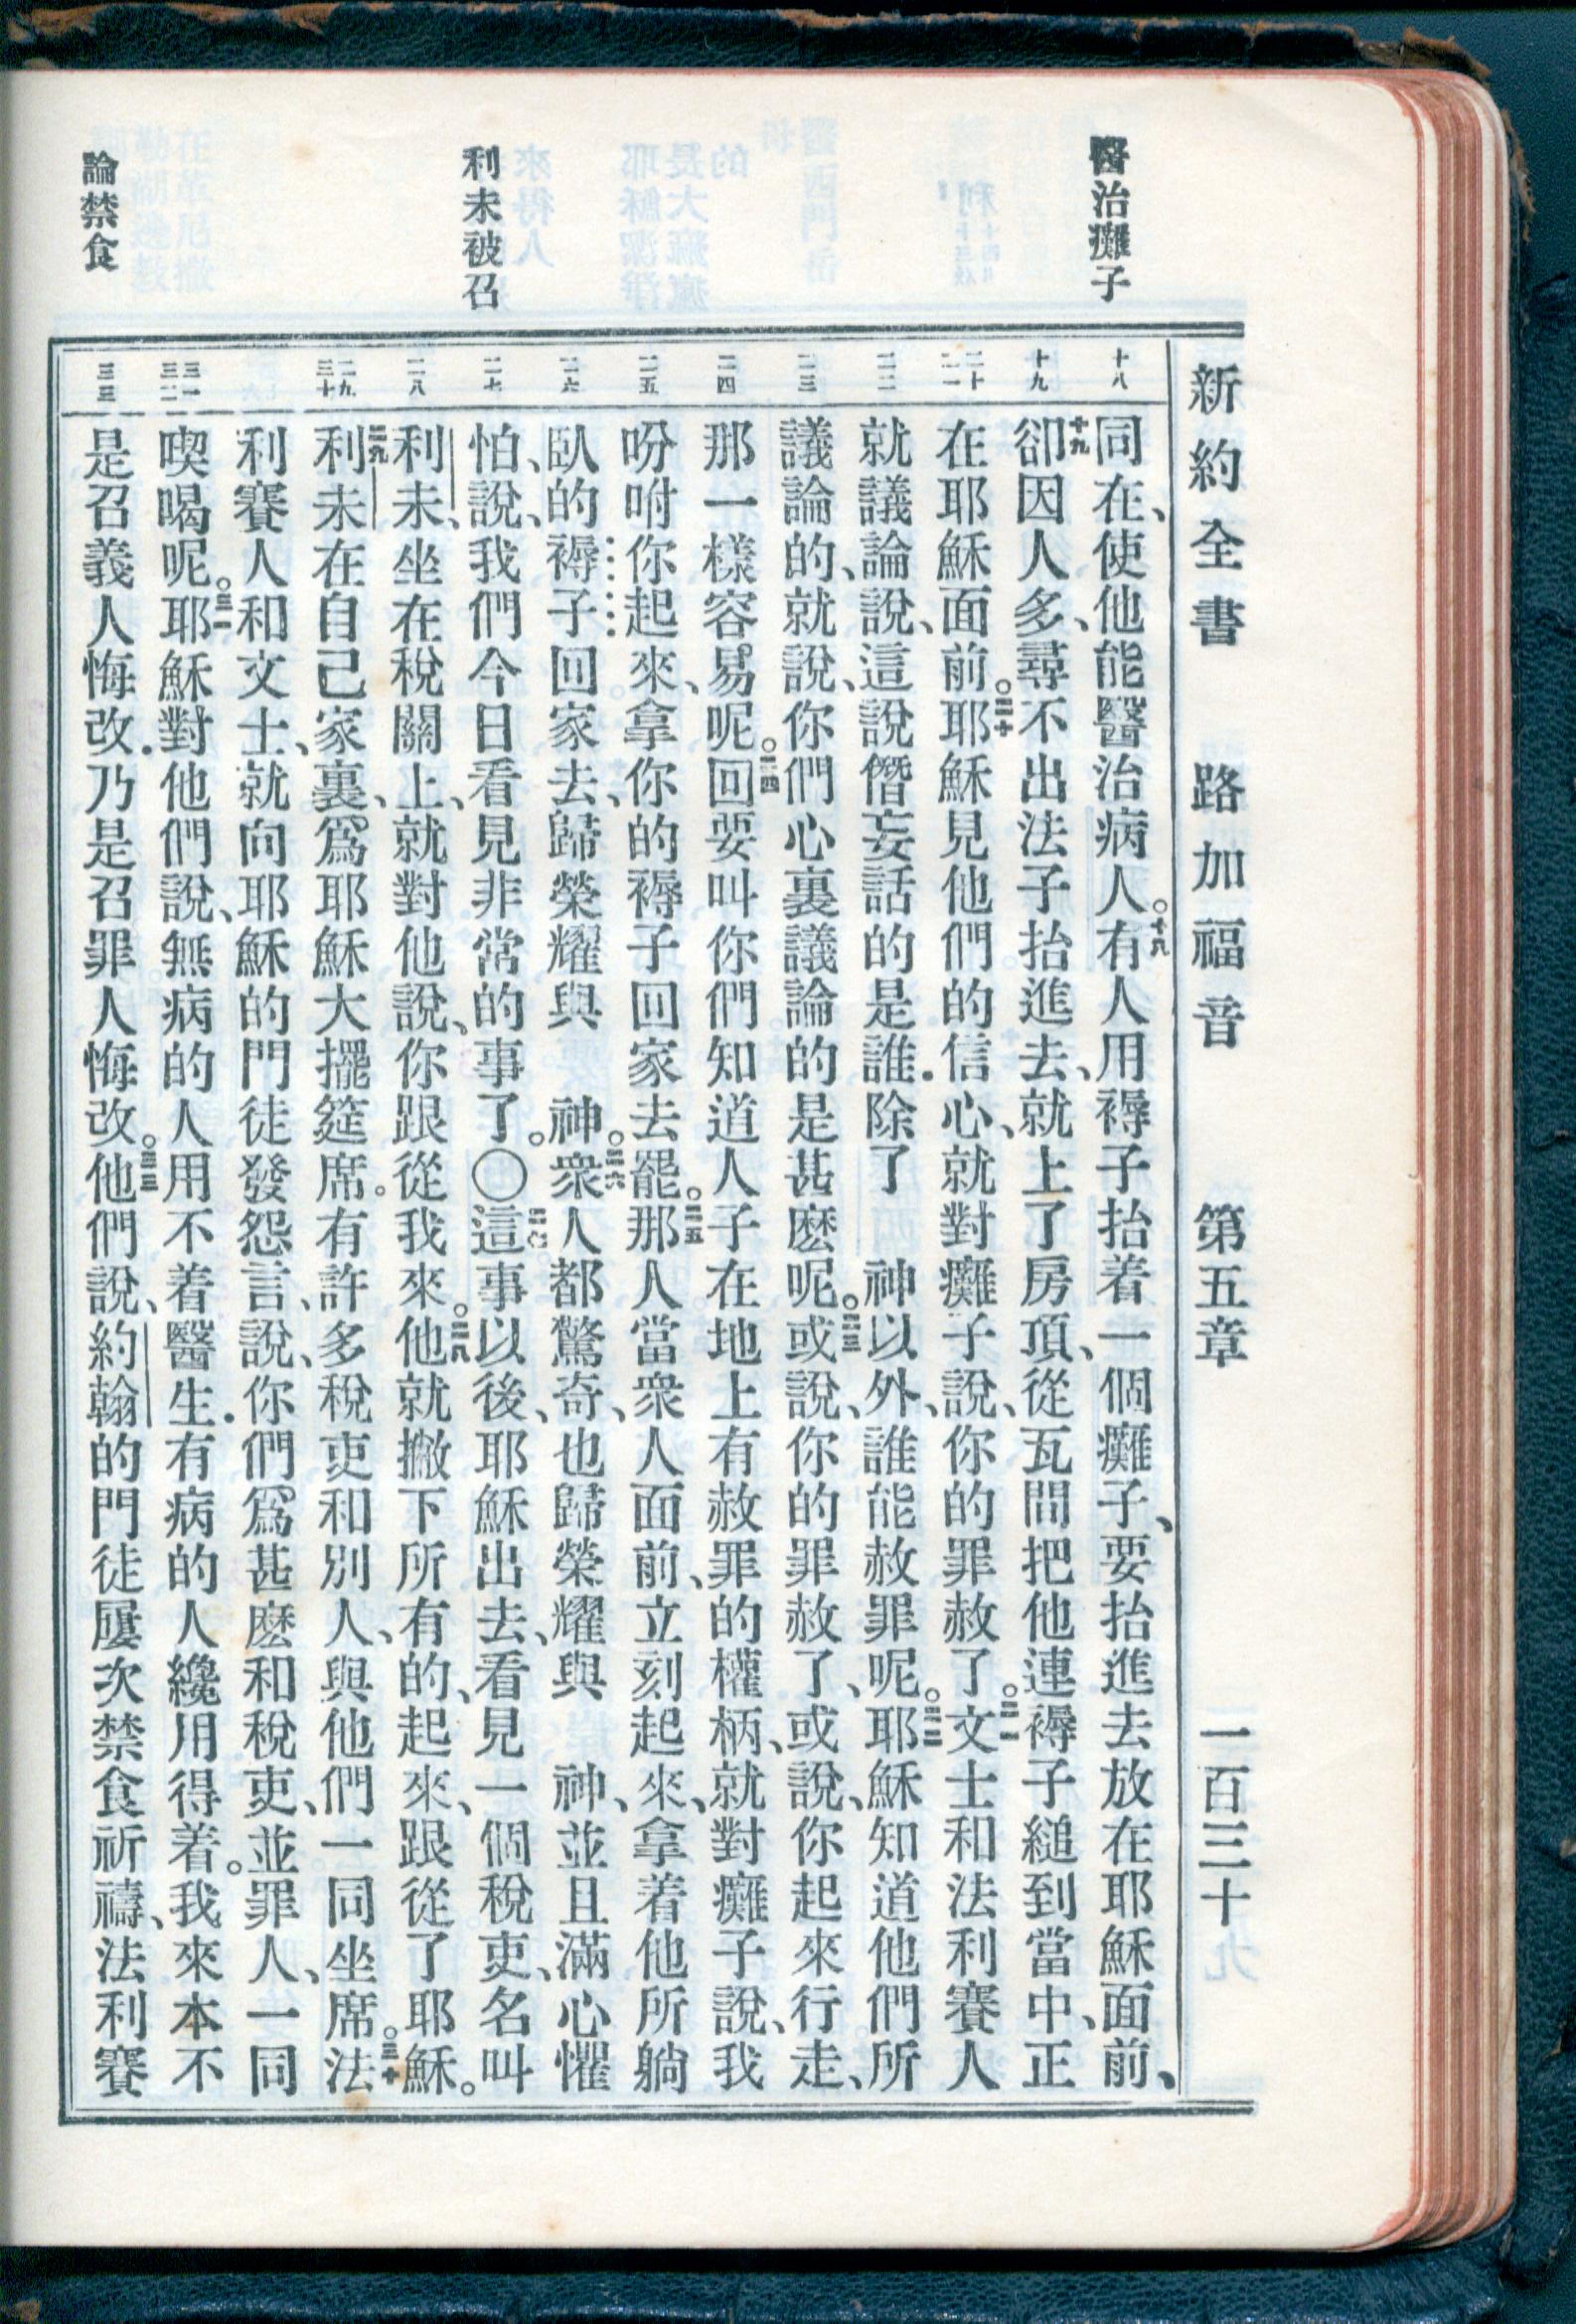 新約全書 路加福音 第五章 一百三十
醫治癱子
利未被召
論禁食
十八
十九
二十
二一
二二
二三
二四
二五
二六
二七
二八
二九
三十
三一
三二
三三
同在、使他能醫治病人。十八有人用褥子抬着一個癱子、要抬進去放在耶穌面前、
十九卻因人多、尋不出法子抬進去、就上了房頂、從瓦間把他連褥子縋到當中、正
在耶穌面前。二十耶穌見他們的信心、就對癱子說、你的罪赦了。二一文士和法利賽人
就議論說、這說僭妄話的是誰．除了 神以外、誰能赦罪呢。二二耶穌知道他們所
議論的、就說、你們心裏議論的是甚麼呢。二三或說、你的罪赦了、或說、你起來行走、
那一樣容易呢。二四回要叫你們知道人子在地上有赦罪的權柄、就對癱子說、我
吩咐你起來、拿你的褥子回家去罷。二五那人當衆人面前、立刻起來、拿着他所躺
臥的褥子回家去、歸榮耀與 神。二六衆人都驚奇、也歸榮耀與 神、並且滿心懼
怕、說、我們今日看見非常的事了。〇二七這事以後、耶穌出去、看見一個稅吏、名叫
利未、坐在稅關上、就對他說、你跟從我來。二八他就撇下所有的、起來、跟從了耶穌。
二九利未在自己家裏、爲耶穌大擺筵席。有許多稅吏和別人、與他們一同坐席。三十法
利賽人和文士、就向耶穌的門徒發怨言、說、你們爲甚麼和稅吏、並罪人、一同
喫喝呢。三一耶穌對他們說、無病的人用不着醫生．有病的人纔用得着。我來本不
是召義人悔改．乃是召罪人悔改。三三他們說、約翰的門徒屢次禁食祈禱、法利賽